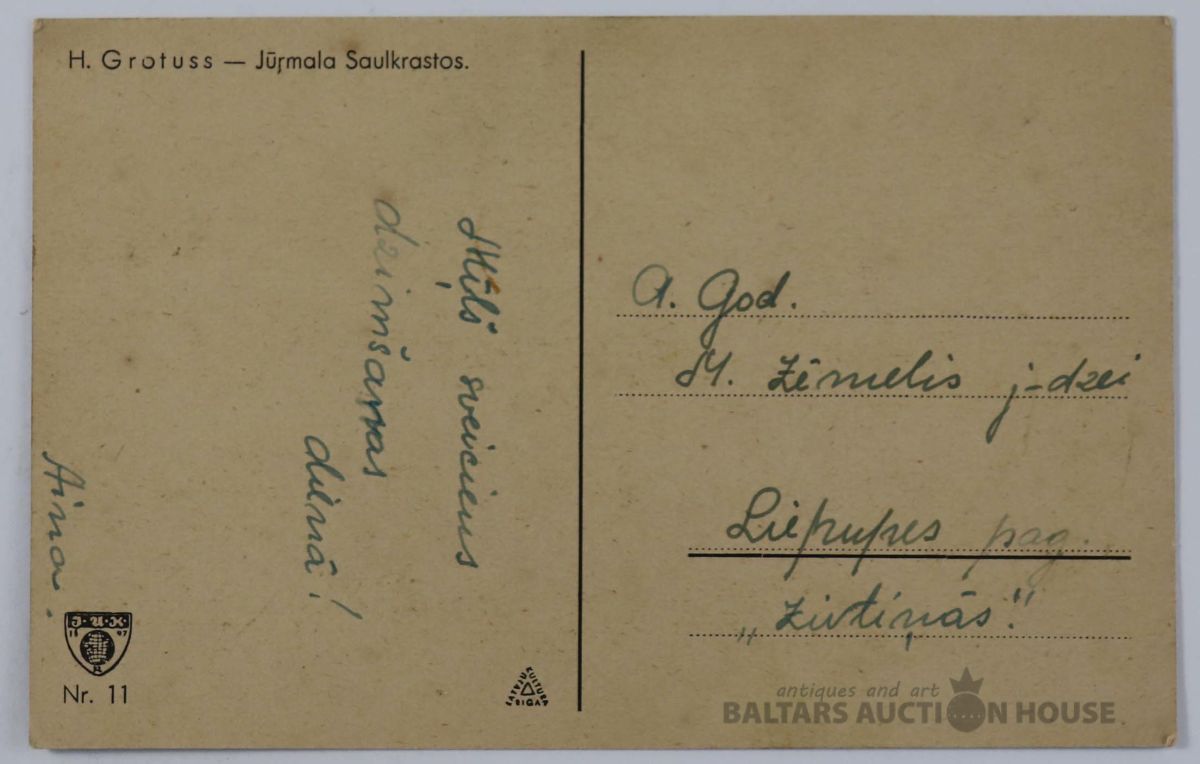 H. Grotuss — Jūŗmala Saulkrastos.
Mīļš sveiciens
dzimšanas
dienā!
Aina.
J·U·K
18 97
R
Nr. 11
LATVJU KULTURA RIGA
A. God.
M. Zēmelis j-dzei
Liepupes pag.
„Zivtiņās"
antiques and art
BALTARS AUCTION HOUSE